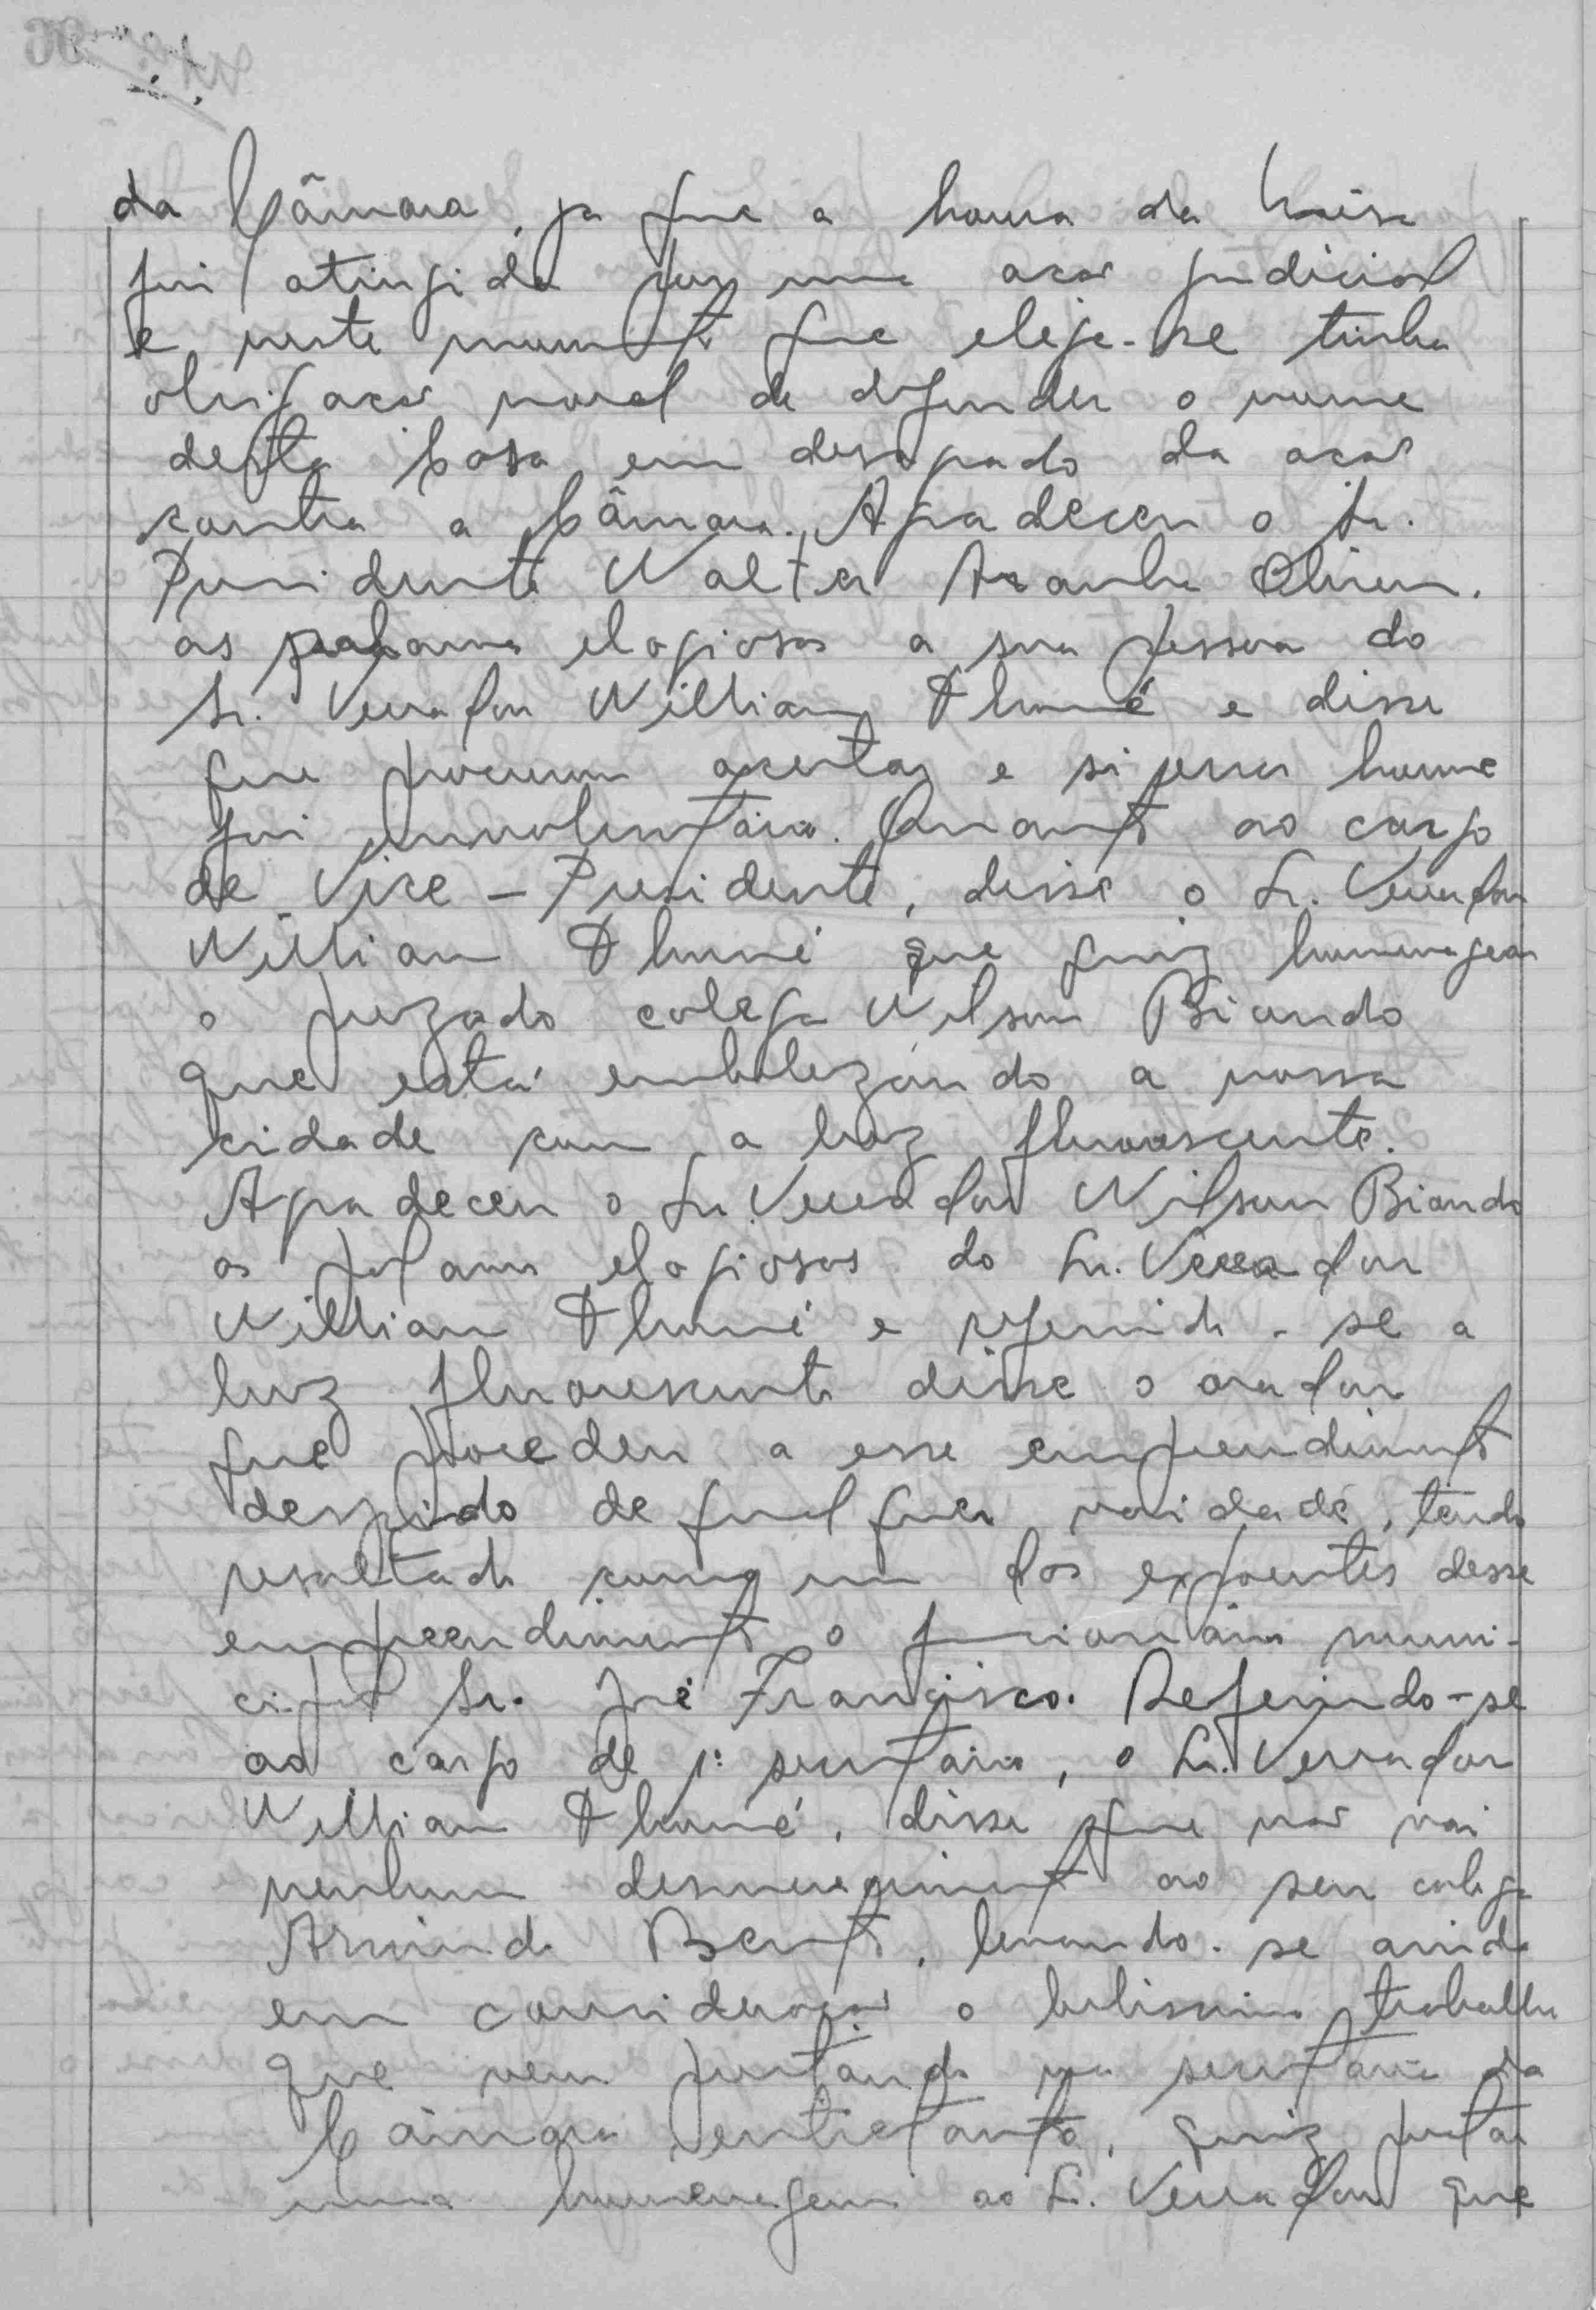 da Câmara, ja que a honra da
foi atingida por uma acao judicial
e neste momento que eleje-se tinha
obrigacao moral de defender o nome
desta Casa em desagrado da acao
contra a Câmara. Agradeceu o Sr.
Presidente Walter Aranha Oliveira.
as palavras elogiosas a sua pessoa do
Sr. Vereador Willian Thomé e disse
que procurou acertar e si erros houve
foi involuntário. Quanto ao cargo
de Vice-Presidente, disse o Sr. Vereador
Willian Thomé que quiz homenagear
o prezado colega Wilson Biondo
que está embelezando a nossa
cidade com a luz fluorescente.
Agradeceu o Sr. Vereador Wilson Biondo
as palavras elogiosas do Sr. Vereador
Willian Thomé e referindo-se a
luz fluorescente disse o orador
que procedeu a esse empreendimento
despido de qualquer vaidade, tendo
resaltado como um dos expoentes desse
empreendimento o funcionário muni-
cipal Sr. José Francisco. Referindo-se
ao cargo de 1º secretário, o Sr. Vereador
Willian Thomé, disse que nao vai
nenhum desmerecimento ao seu colega
Armindo Bento, levando-se ainda
em consideraçao o belissimo trabalho
que vem prestando na secretaria da
Câmara, entretanto, quiz prestar
uma homenagem ao Sr. Vereador que